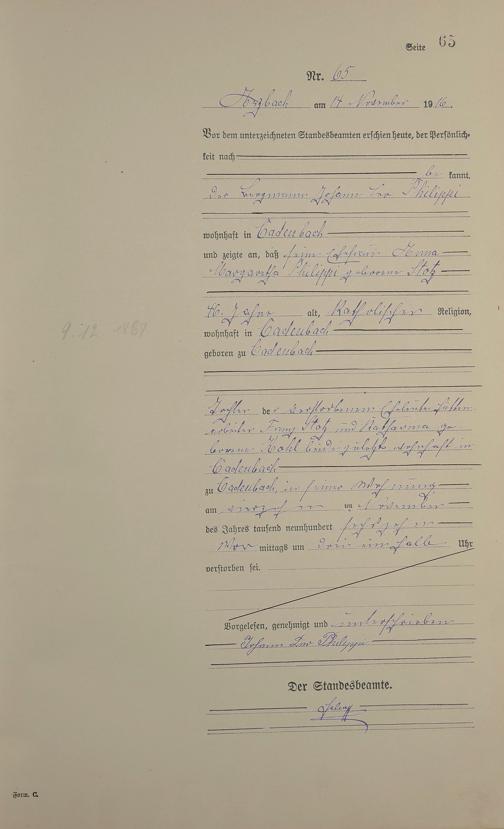 Seite 65
Nr. 65
Arzbach am 14 November 1916.
Vor dem unterzeichneten Standesbeamten erschien heute, der Persönlich-
keit nach
be kannt,
der Bergmann Johann Leo Philippi
wohnhaft in Cadenbach
und zeigte an, daß seine Ehefrau Anna
Margaretha Philippi geborene Stotz
46 Jahre alt, Katholischer Religion,
wohnhaft in Cadenbach
geboren zu Cadenbach
9.12 1869
Tochter der verstorbenen Eheleute Hütten
arbeiter Franz Stotz und Katharina ge
borene Kohl beide zuletzt wohnhaft in
Cadenbach
zu Cadenbach, in seiner Wohnung
am vierzehn ten November
des Jahres tausend neunhundert sechszehn
Vor mittags um drei einhalb Uhr
verstorben sei.
Vorgelesen, genehmigt und unterschrieben
Johann Leo Philippi
Der Standesbeamte.
Form. C.